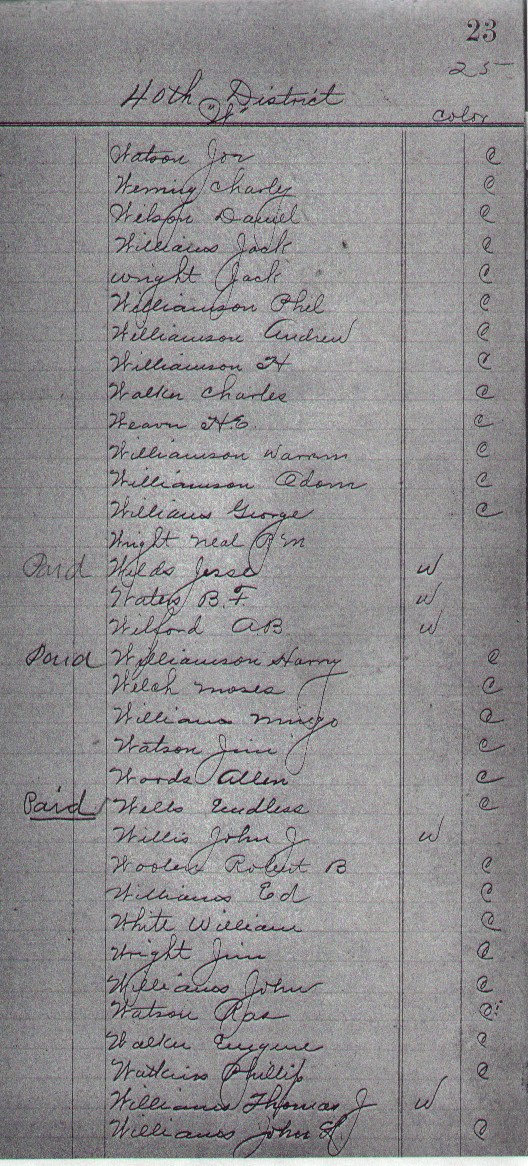 23
25
40th District
"W"
color
Watson Joe C
Weming Charley C
Wilson Daniel C
Williams Jack C
Wright Jack C
Williamson Phel C
Williamson Andrew C
Williamson H C
Walker Charles C
Weaver H.E. C
Williamson Warren C
Williamson Adom C
Williams George C
Wright Neal
Paid Wilds Jesse W
Waters B.F. W
Wilford AB W
Paid Williamson Harry C
Welch Moses C
Williams Mingo C
Watson Jim C
Woods Allen C
Paid Wells Endless C
Willis John J W
Wooten Robert B C
Williams Ed C
White William C
Wright Jim C
Williams John C
Watson Ras C
Walker Eugene C
Watkins Phillip C
Williams Thomas J W
Williams John H. C